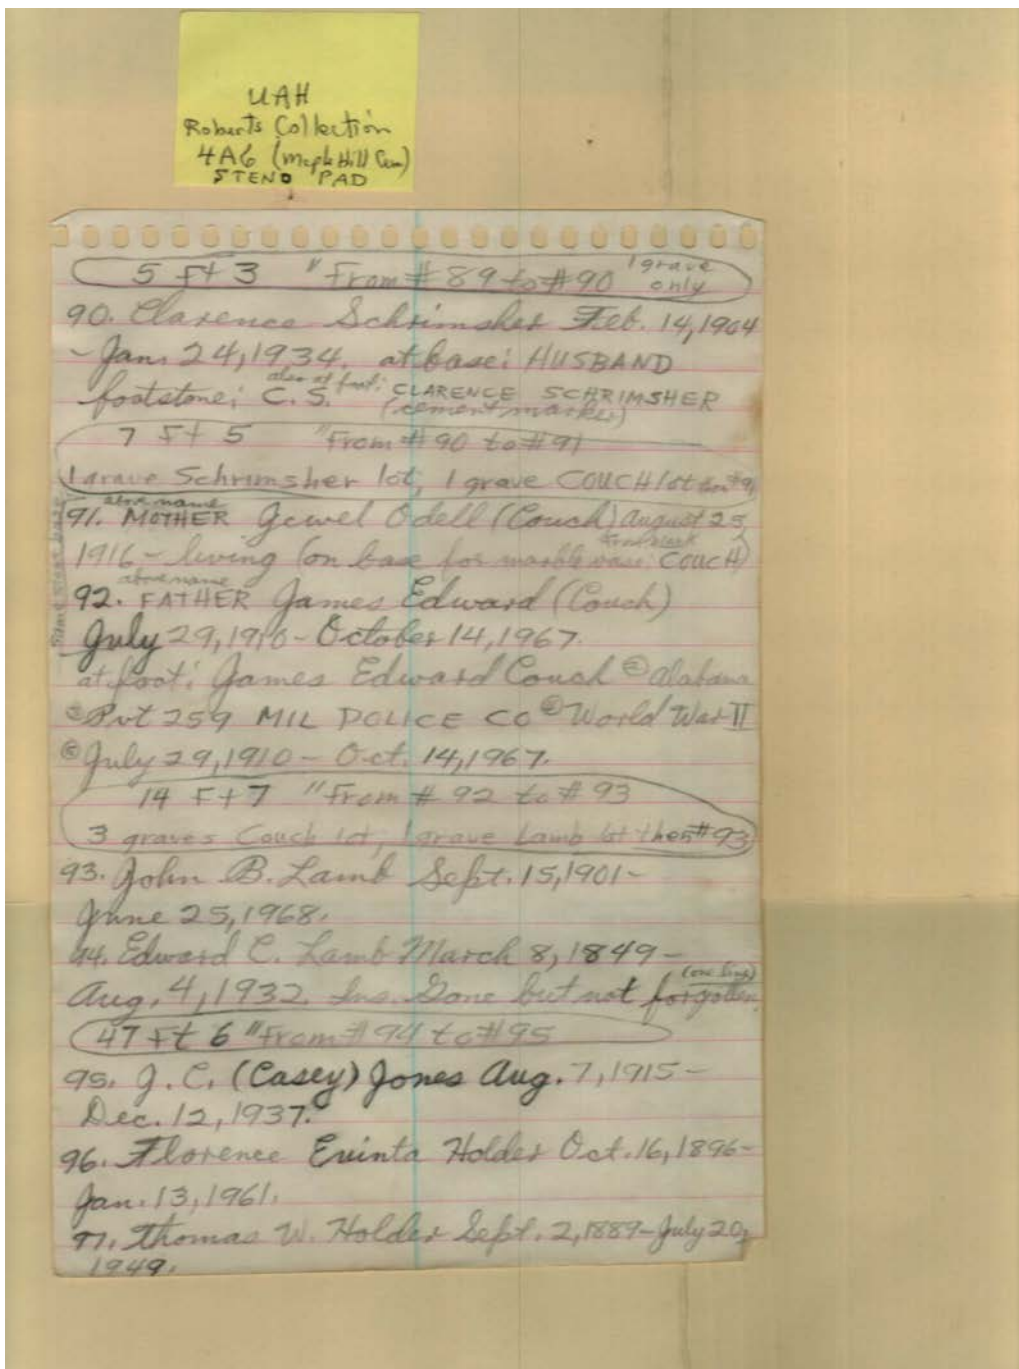 UAH
Roberts Collection
4A6 (Maple Hill Cem)
STENO PAD
5 Ft 3 " From # 89 to # 90 1 grave only
90. Clarence Schrimsher Feb. 14, 1904
- Jan. 24, 1934. at base: HUSBAND
footstone: C. S. also at foot: CLARENCE SCHRIMSHER
(cement marker)
7 Ft 5 " From # 90 to # 91
1 grave Schrimsher lot, 1 grave COUCH lot then # 91
above name
91. MOTHER Jewel Odell (Couch) August 25,
1916 - living (on base for marble vase: COUCH)
above name
92. FATHER James Edward (Couch)
July 29, 1910 - October 14, 1967.
at foot: James Edward Couch ② Alabama
③ Pvt 259 MIL POLICE CO ④ World War II
⑤ July 29, 1910 - Oct. 14, 1967.
14 Ft 7 " From # 92 to # 93
3 graves Couch lot, 1 grave Lamb lot then # 93
93. John B. Lamb Sept. 15, 1901 -
June 25, 1968.
94. Edward C. Lamb March 8, 1849 -
Aug. 4, 1932. Ins. Gone but not forgotten. (one line)
47 Ft 6 " From # 94 to # 95
95. J. C. (Casey) Jones Aug. 7, 1915 -
Dec. 12, 1937.
96. Florence Evinta Holder Oct. 16, 1896 -
Jan. 13, 1961.
97. Thomas W. Holder Sept. 2, 1889 - July 20,
1949.